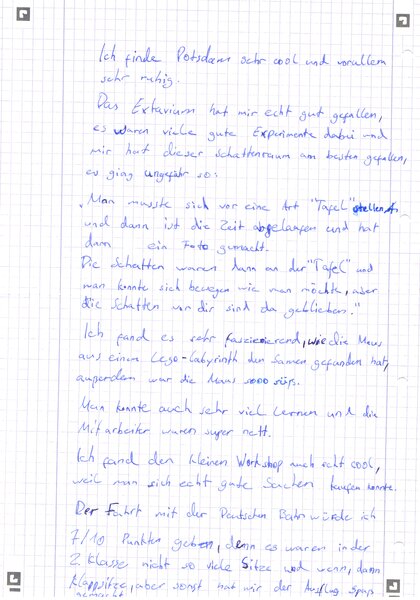 Ich finde Potsdam sehr cool und vorallem
sehr ruhig.
Das Extavium hat mir echt gut gefallen,
es waren viele gute Experimente dabei und
mir hat dieser Schattenraum am besten gefallen,
es ging ungefähr so:
„Man musste sich vor eine Art "Tafel" stellen
und dann ist die Zeit abgelaufen und hat
dann ein Foto gemacht.
Die Schatten waren dann an der "Tafel" und
man konnte sich bewegen wie man möchte, aber
die Schatten von dir sind da geblieben."
Ich fand es sehr faszinierend, wie die Maus
aus einem Lego-Labyrinth den Samen gefunden hat,
außerdem war die Maus sooo süß.
Man konnte auch sehr viel Lernen und die
Mitarbeiter waren super nett.
Ich fand den kleinen Workshop auch echt cool,
weil man sich echt gute Sachen kaufen konnte.
Der Fahrt mit der Deutschen Bahn würde ich
7/10 Punkten geben, denn es waren in der
2 Klasse nicht so viele Sitze und wenn, dann
Klappsitze, aber sonst hat mir der Ausflug Spaß
gemacht